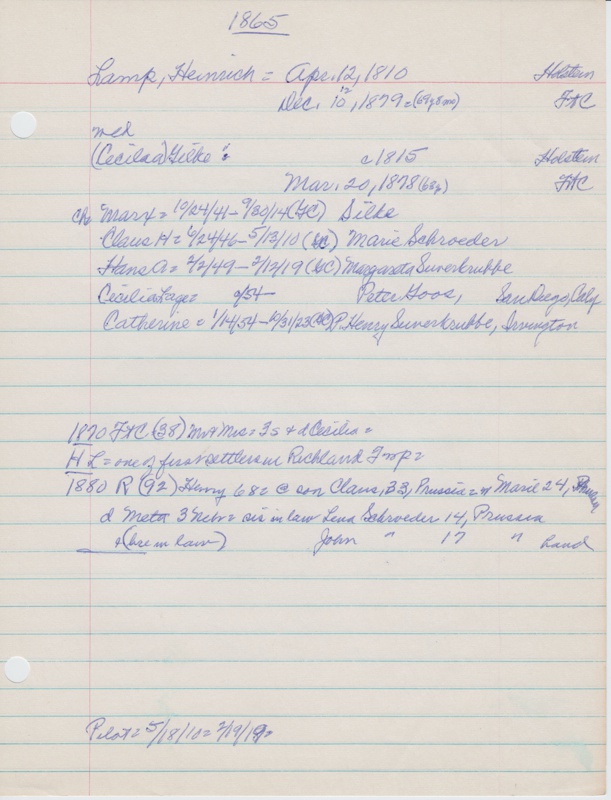 1865
Lamp, Heinrich = Apr. 12, 1810 Holstein
Dec. 10, 1879 = (69y 8m)
med
(Cecilia) Silke = c1815 Holstein
Mar. 20, 1878 (63y)
ch Marx = 10/24/41 - 9/30/14 Silke
Claus H = 6/24/46 - 5/13/10 Marie Schroeder
Hans A = 2/2/49 - 2/12/19 Margareta Suverkrubbe
Cecilia Lage = 9/54 - Peter Goos, San Diego, Calif
Catherine = 1/14/54 - 10/31/23 P. Henry Suverkrubbe, Irvington
1870 (38) Mr + Mrs = 3s + d Cecilia =
H L = one of first settlers in Richland Twp =
1880 R (92) Henry 68 = @ son Claus, 33, Prussia = w Marie 24, Prussia
d Meta 3 Nebr = sis in law Lena Schroeder 14, Prussia
+ (bro in law) John " 17 " hand
Pilot = 5/18/10 = 2/19/19 =